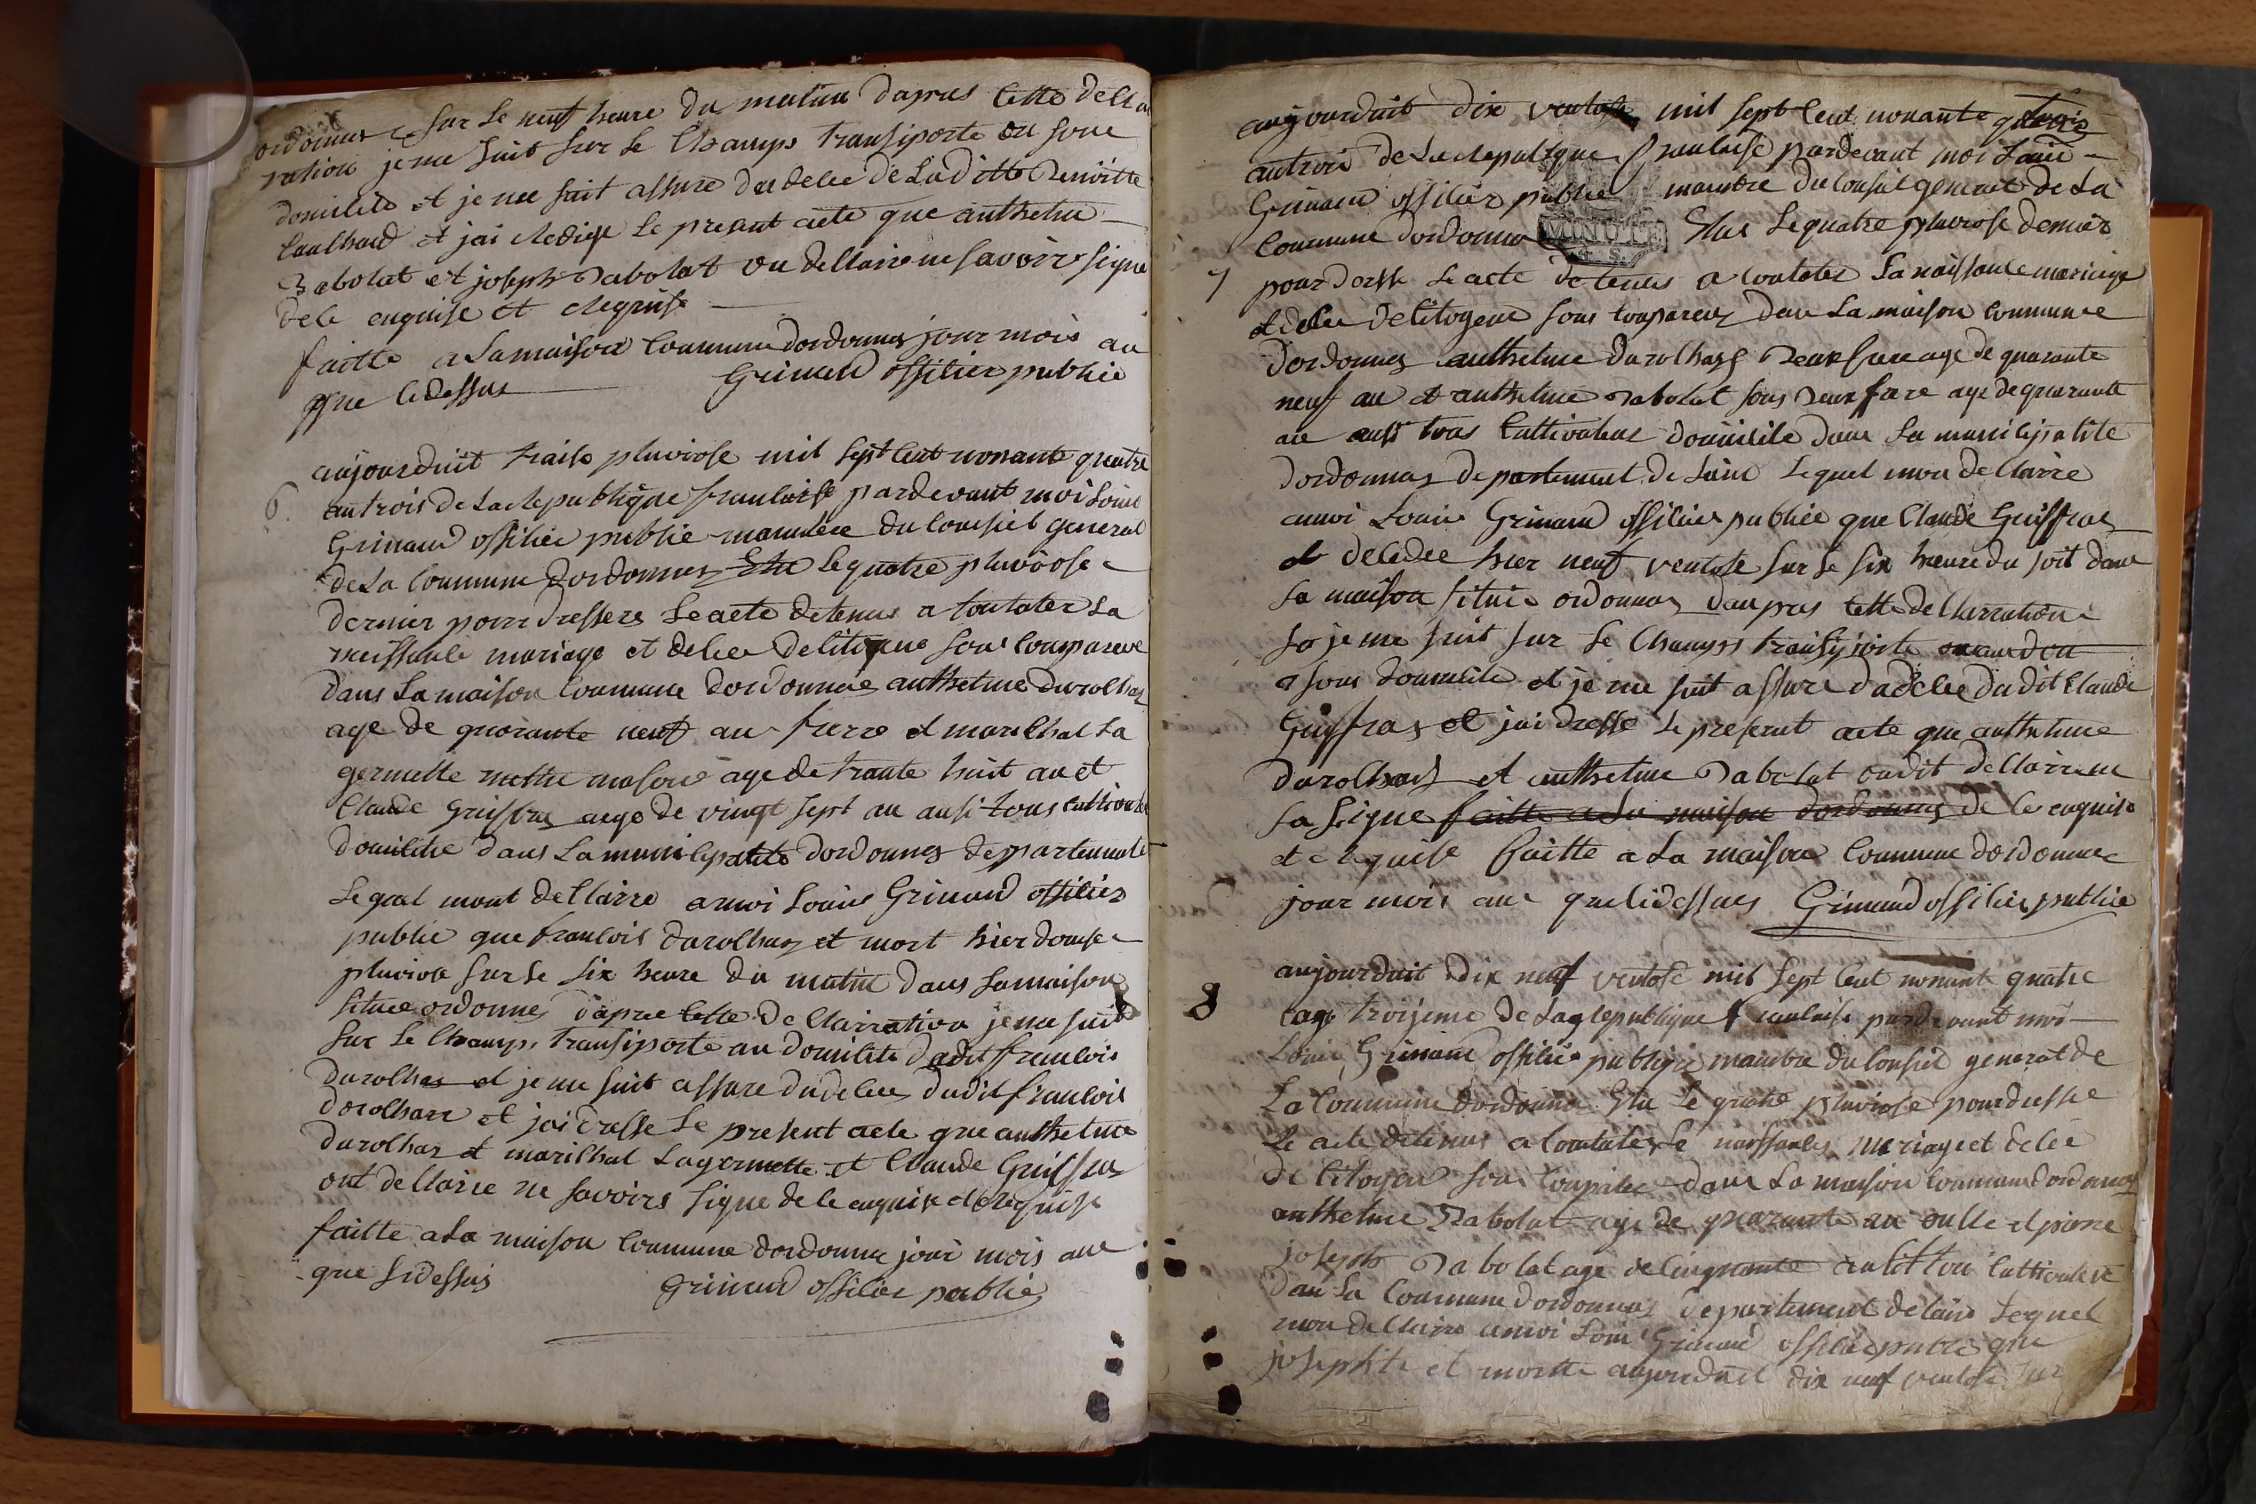 ordonnas sur le neuf heure du matin dapres cette della
ration je me suit sur le Champs transiporte au sone
domilile et je me suit assure du delee de La ditte Benoitte
Caulhard et jai Redige le present acte que anthelme
Rabolat et joseph Rabolat on dellaire ne savoir signe
dele enquise et Requise
faitte a la maison Commune dordonnas jour mois an
que cidessus Grimand offilier publie
6.
aujourduit traise pluviose mil sept cent nonante quatre
an trois de La Republique franloise pardevant moi Louis
Grimand offilier publie manbre du Consiel general
de La Commune Dordonnas Elu le quatre pluviose
dernier pour dressere le acte detenus a Contater La
naissanle mariage et delee de litoyens sont Comparue
dans La maison Commune dordonnas anthelme Durolhas
age de quarante neuf an frerre et marilhal La
germette mettre mason age de trante huit an et
Claude Guiffras aege de vingt sept an ausi tous cultivateur
domilelie dans La munilepalite dordonnas departement
Lequel mont dellaire a moi Louis Grimand offilier
publie que franlois durolhas et mort hier douse
pluviose sur le six heure du matin dans sa maison
situee ordonnes dapre cette dellairation je me suit
sur le Champs transiporte au domilile dudit franlois
durolhas et je me suit assure du delee dudit franlois
dorolhare et jai dresse le present acte que anthelme
durolhas et marilhal Lagermette et Claude Guiffras
ont dellaire ne savoire signe dele enquise et requise
faitte a la maison Commune dordonnas jour mois an
que sidessus Grimand offilier publie
aujourduit dix ventose mil sept Cent nonante quatre
an trois de La Republique franloise pardevant moi Louis
Grimand offilier publie manbre du Consiel general de La
Commune dordonnas Elus le quatre pluviose dernier
MINUTE
7
pour dresse le acte detenus a Contater La naissanle mariage
et delee de litoyene sont Comparus dans La maison Commune
dordonnes anthelme durolhas beaux frere age de quarante
neuf an et anthelme Rabolat sous beaux frere age de quarante
an ausi tous Cultivateur domilile dans la munilipalite
dordonnas departement de Lain Lequel mon dellaire
a moi Louis Grimand offilier publie que Claude Guiffras
et deledee hier neuf ventose sur le six heure du soir dans
sa maison situie ordonnas dau pres cette dellairation
je me suit sur le Champs transiporte
a sous domilile et je me suit assure dudelee dudit Claude
Guiffras et jai dresse le present acte que anthelme
durolhas et anthelme Rabolat ondit dellaire ne
sa signe faitte a la maison dordonnas de le enquise
et Requise faitte a La maison Commune dordonnas
jour mois ans que cidessus Grimand offilier publie
8
aujourduit dix neuf ventose mil sept Cent nonante quatre
troisieme de La Republique franloise pardevant moi
Louis Grimand offilier publie manbre du Consiel general de
La Commune dordonnas Elu le quatre pluviose pour dresse
le acte detenus a Contater le naissanle mariage et delee
de litoyen sont Comparue dans La maison Commune dordonnas
anthelme Rabolat age de quarante an onlle et pierre
joseph Rabolat age de linquante an Cultivateur
dans La Commune dordonnas departement de Lain Lequel
mon dellaire a moi Louis Grimand offilier publie que
josephte et morte aujourduit dix neuf ventose sur